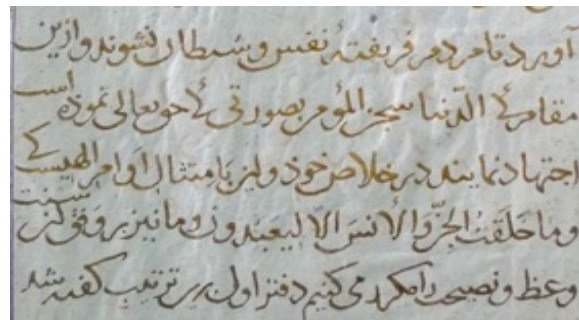 آورد تا مردم فریفتهٔ نفس و شیطان نشوند و ازین
مقام که الدنیا سجن المؤمن بصورتی که حق تعالی نموده است
اجتهاد نمایند در خلاص خود و لیز بامتثال اوامر الهیست که
وما خلقت الجن والانس الا لیعبدون وما نیز بر وفق سنت
وعظ و نصیحت را مکرر می کنیم دفتر اول برین ترتیب گفته شد